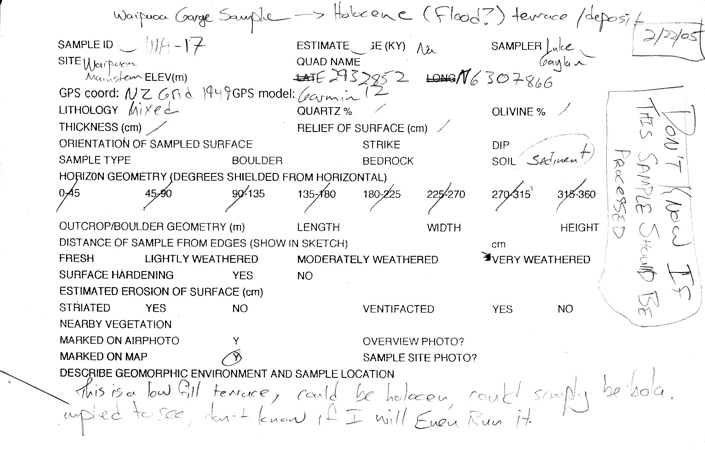 Waipaoa Gorge Sample → Holocene (Flood?) terrace / deposit
2/22/05
SAMPLE ID WA-17 ESTIMATE GE (KY) Na SAMPLER Luke
SITE Waipaoa QUAD NAME Gaylen
Mainstem ELEV(m) LATE 2932852 LONG N6307866
GPS coord: NZ Grid 1949 GPS model: Garmin 12
LITHOLOGY Mixed QUARTZ % / OLIVINE % /
THICKNESS (cm) / RELIEF OF SURFACE (cm) /
ORIENTATION OF SAMPLED SURFACE STRIKE DIP
SAMPLE TYPE BOULDER BEDROCK SOIL Sediment
HORIZON GEOMETRY (DEGREES SHIELDED FROM HORIZONTAL)
0-45 45-90 90-135 135-180 180-225 225-270 270-315 315-360
OUTCROP/BOULDER GEOMETRY (m) LENGTH WIDTH HEIGHT
DISTANCE OF SAMPLE FROM EDGES (SHOW IN SKETCH) cm
FRESH LIGHTLY WEATHERED MODERATELY WEATHERED VERY WEATHERED
SURFACE HARDENING YES NO
ESTIMATED EROSION OF SURFACE (cm)
STRIATED YES NO VENTIFACTED YES NO
NEARBY VEGETATION
MARKED ON AIRPHOTO Y OVERVIEW PHOTO?
MARKED ON MAP Y SAMPLE SITE PHOTO?
DESCRIBE GEOMORPHIC ENVIRONMENT AND SAMPLE LOCATION
This is a low fill terrace, could be holocen, could simply be
to see, don't know if I will Even Run it.
DON'T KNOW IF
THIS SAMPLE SHOULD BE
PROCESSED